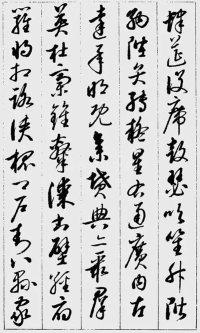 肆筵設席鼓瑟吹笙升階
納陛弁轉疑星右通廣內左
達承明既集墳典亦聚群
英杜稿鍾隸漆書壁經府
羅將相路俠槐卿戶封八縣家